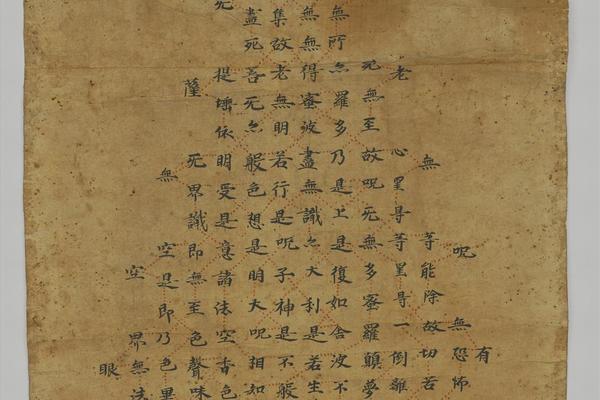 有
呪無恐怖
無等能除故切苦
老心罣㝵等罣㝵一倒離
死無至故呪无無多蜜羅顛夢
無所亦羅多乃是上是復如舍波不
無無得蜜波盡無識亦大利是若生
集故老無明若行是呪子神是不般
盡死菩无亦般色想是明大呪相如
提埵依明受是意諸法空香色
薩无界識即無至色聲味
無空是即乃色界
空界無法
眼